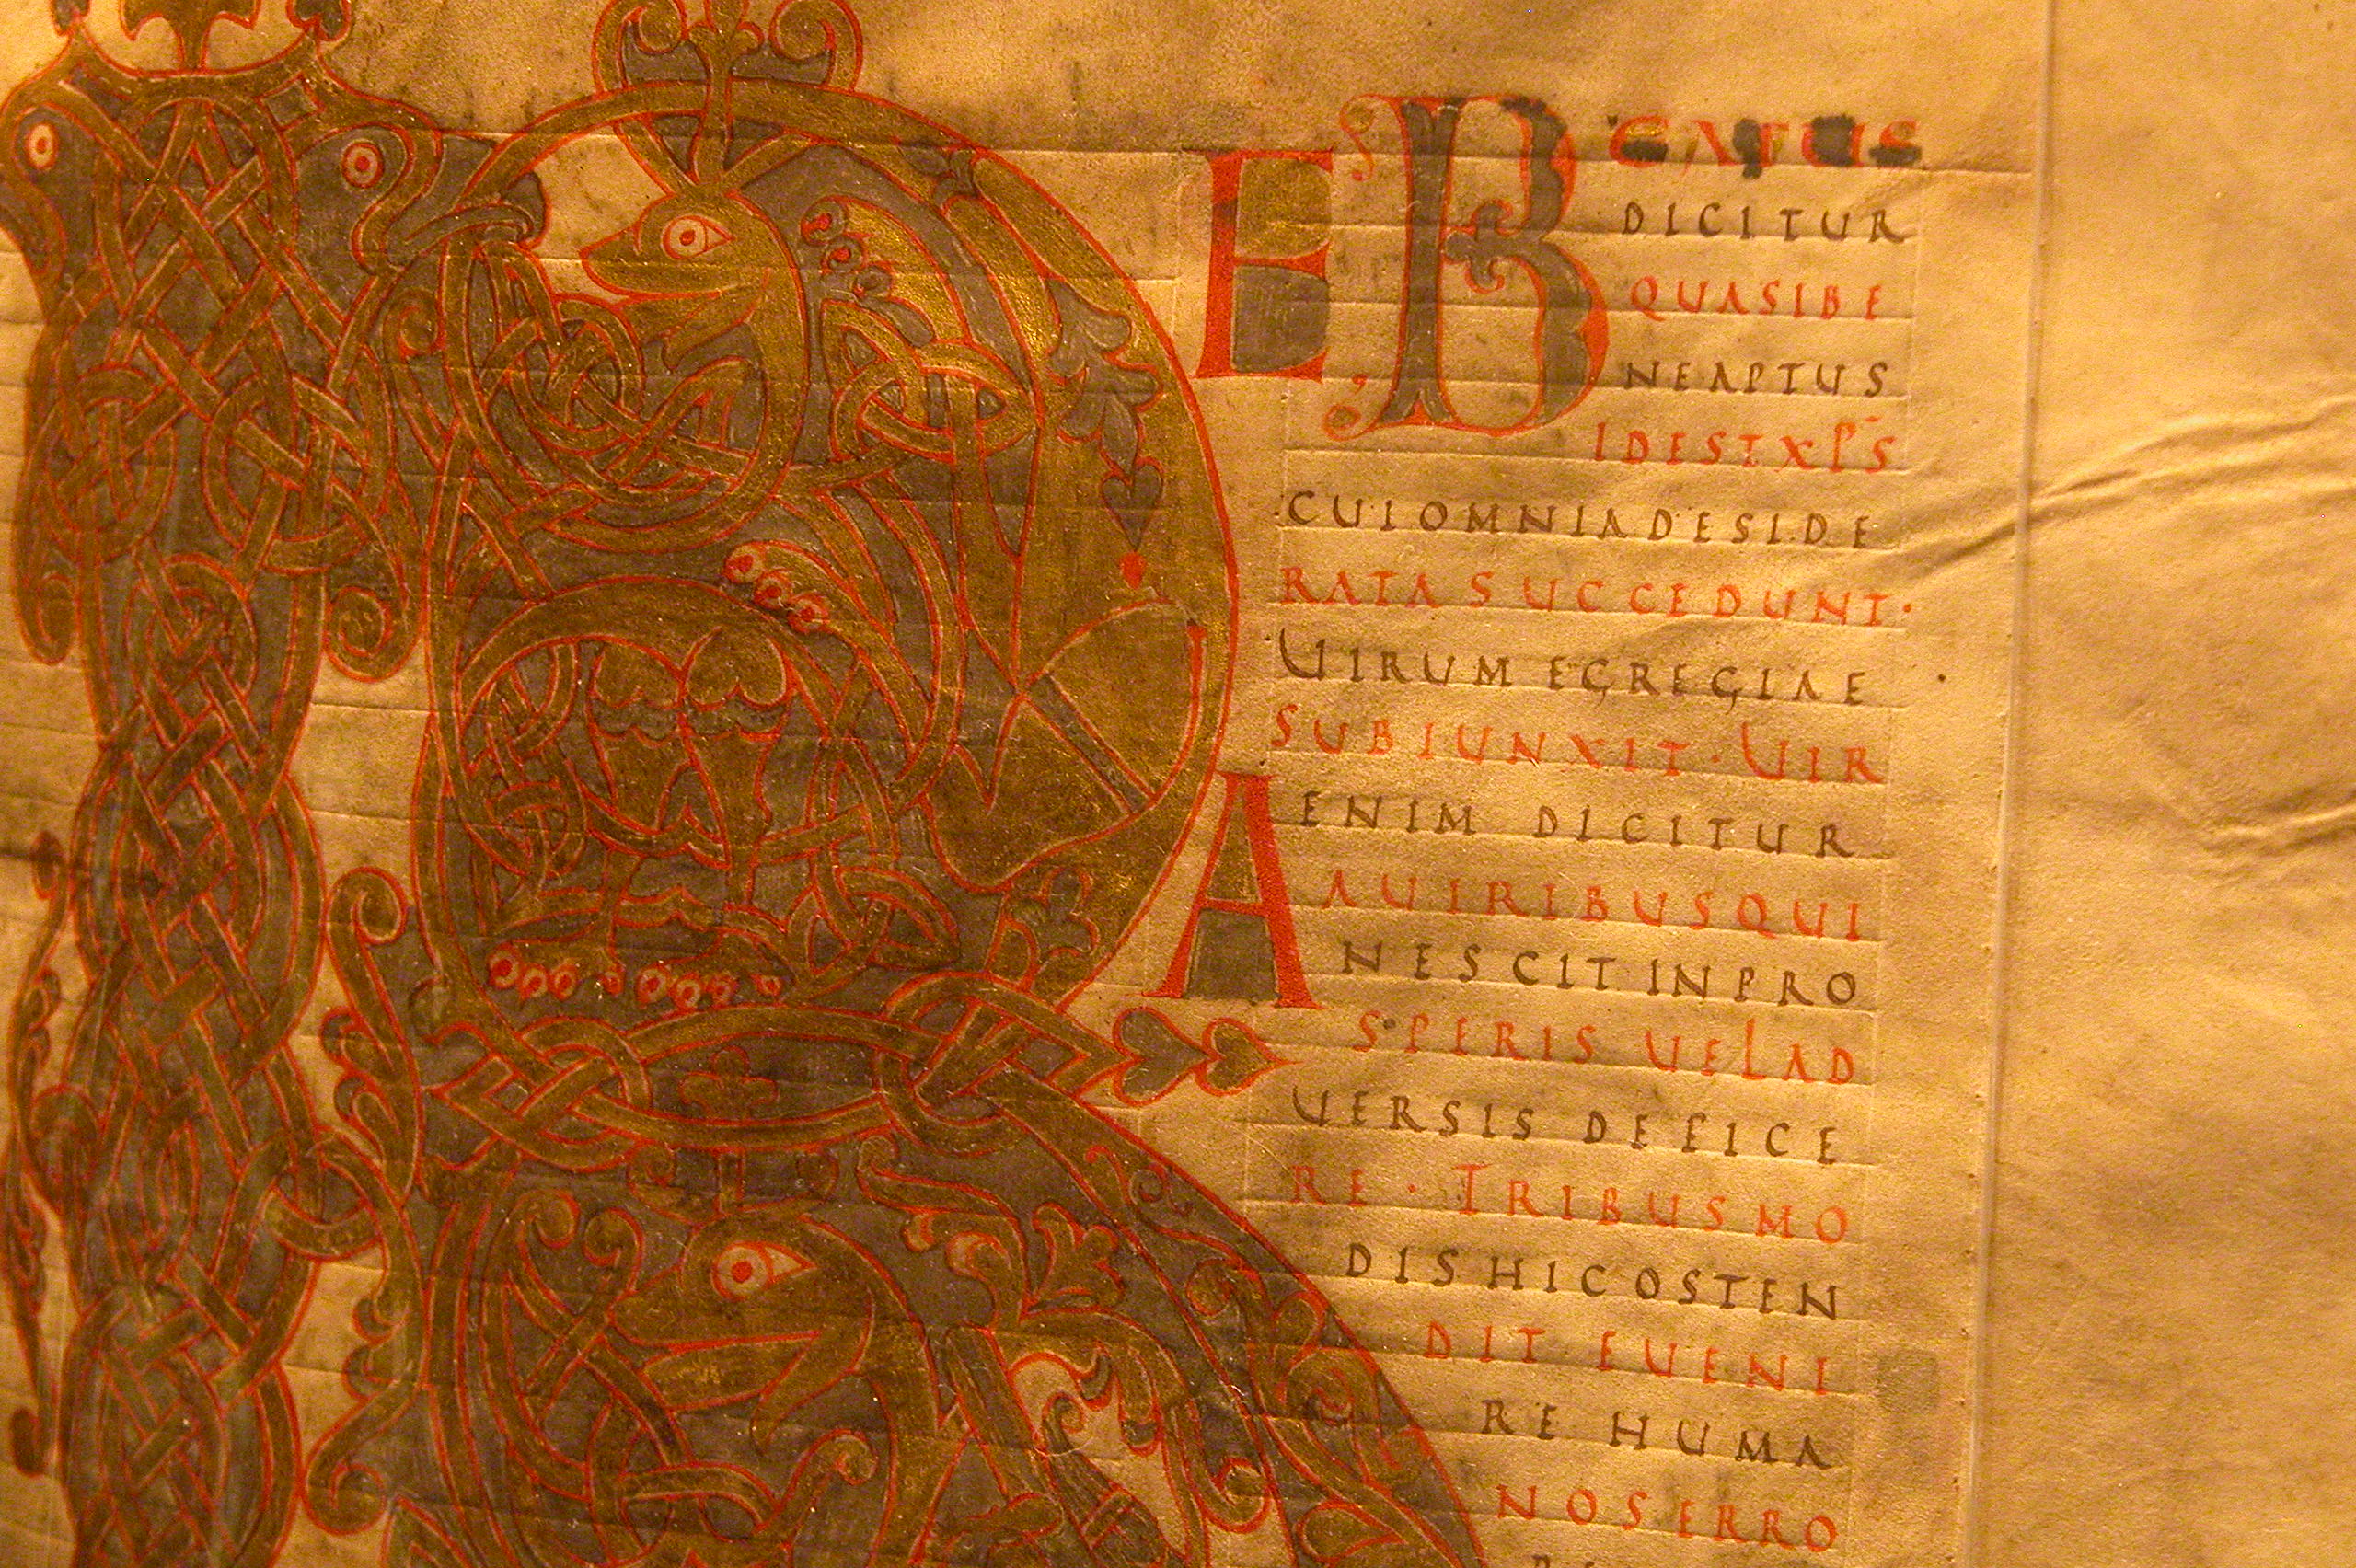 B E B EATUS
DICITUR
QUASIBE
NEAPTUS
IDESTXP̄S
CUIOMNIADESIDE
RATA SUCCEDUNT·
UIRUM EGREGIAE
SUBIUNXIT· UIR
A ENIM DICITUR
AUIRIBUSQUI
NESCIT INPRO
SPERIS UELAD
UERSIS DEFICE
RE· TRIBUSMO
DISHICOSTEN
DIT EUENI
RE HUMA
NOSERRO